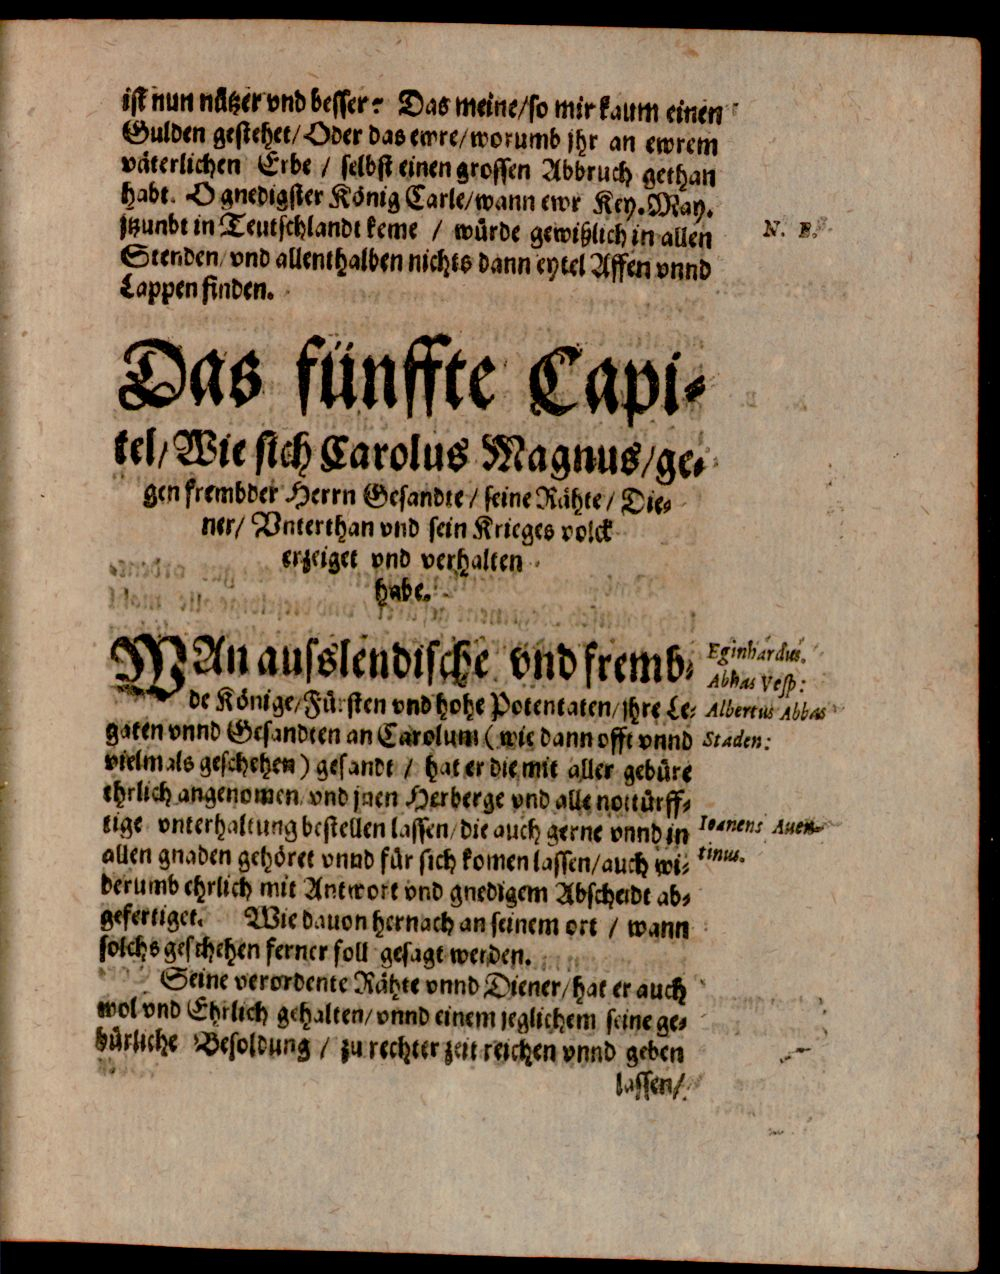 ist nun nützer vnd besser? Das meine/so mir kaum einen
Gulden gestehet/Oder das ewre/worumb jhr an ewrem
väterlichen Erbe / selbst einen grossen Abbruch gethan
habt. O gnedigster König Carle/wann ewr Key.May.
jtzunbt in Teutschlandt keme / würde gewißlich in allen
Stenden/vnd allenthalben nichts dann eytel Affen vnnd
Lappen finden.
N. B.
Das fünffte Capi-
tel/Wie sich Carolus Magnus/ge-
gen frembder Herrn Gesandte/ seine Rähte/ Die-
ner/ Vnterthan vnd sein Krieges volck
erzeiget vnd verhalten
habe.
WAn ausslendische vnd fremb-
de Könige/Fürsten vnd hohe Potentaten/jhre Le-
gaten vnnd Gesandten an Carolum (wie dann offt vnnd
vielmals geschehen) gesandt / hat er die mit aller gebüre
ehrlich angenomen/vnd jnen Herberge vnd alle nottürff-
tige vnterhaltung bestellen lassen/die auch gerne vnnd in
allen gnaden gehöret vnnd für sich komen lassen/auch wi-
derumb ehrlich mit Antwort vnd gnedigem Abscheidt ab-
gefertiget. Wie dauon hernach an seinem ort / wann
solchs geschehen ferner soll gesagt werden.
Eginhardus.
Abbas Vesp:
Albertus Abbas
Staden:
Ioanens Auen-
tinus.
Seine verordente Rähte vnnd Diener/hat er auch
wol vnd Ehrlich gehalten/vnnd einem jeglichem seine ge-
bürliche Besoldung / zu rechter zeit reichen vnnd geben
lassen/